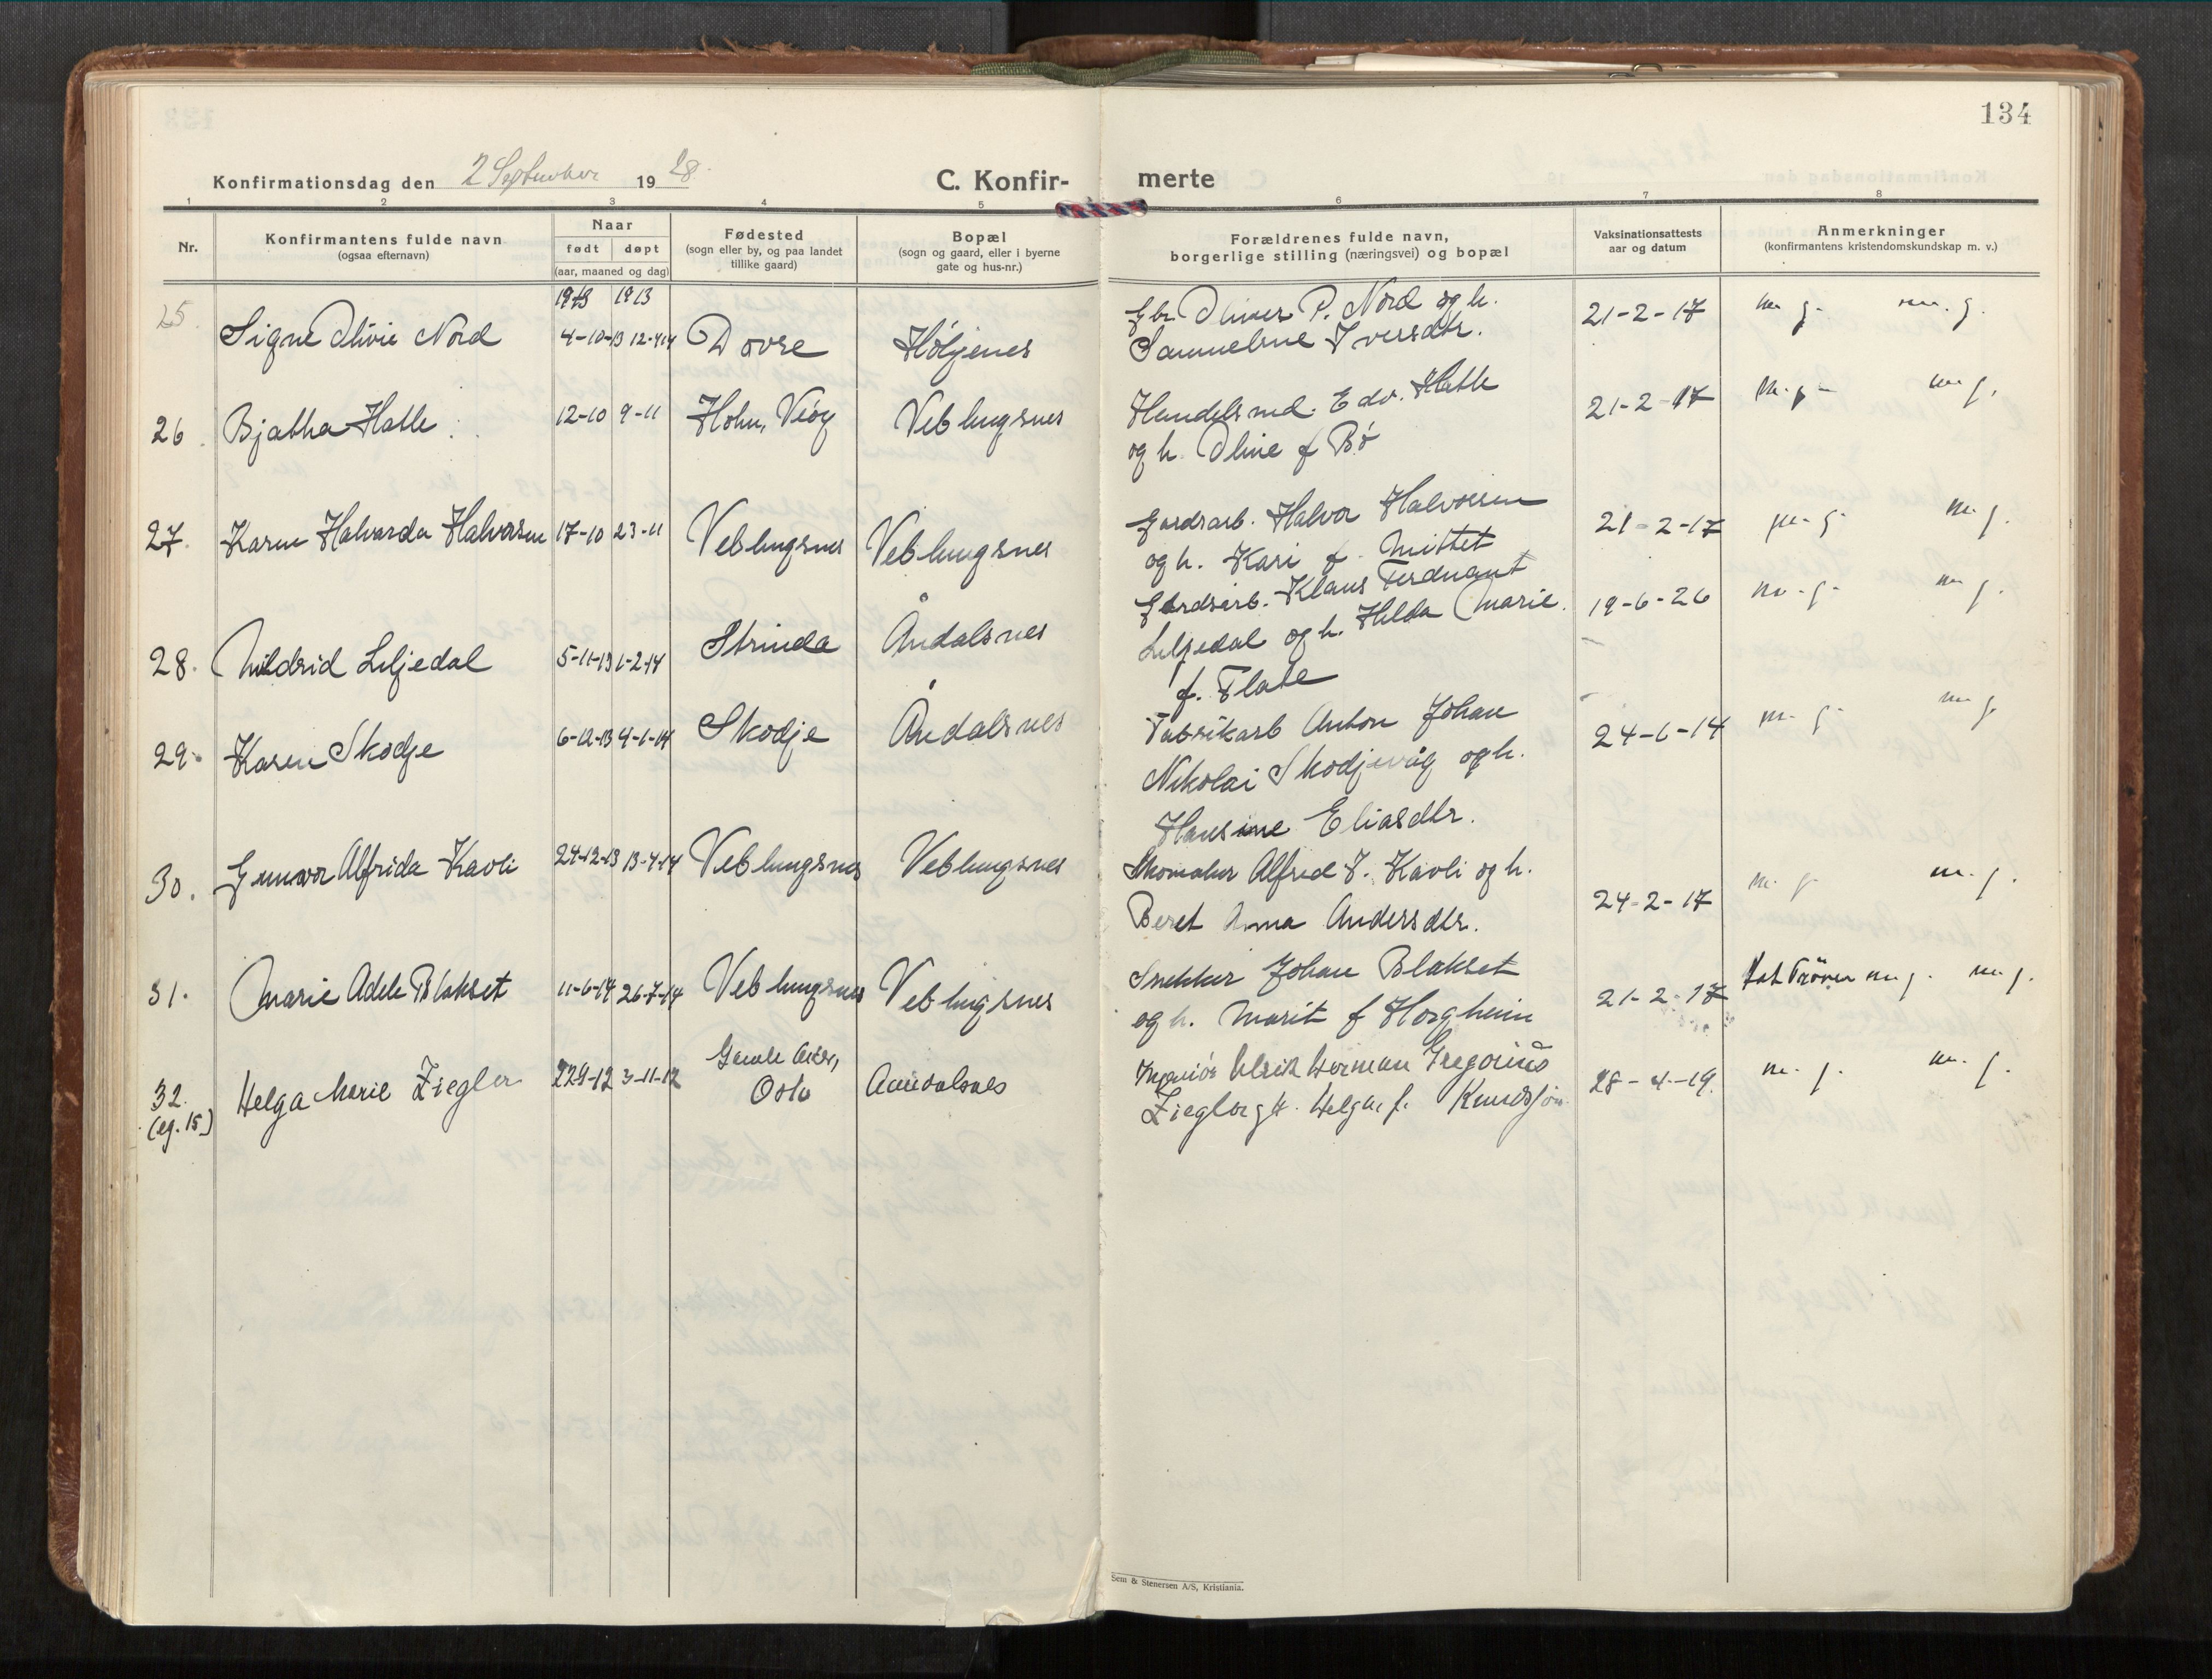 134
Konfirmationsdag den 2 September 1928.
C. Konfir- merte
1 2 3 4 5 6 7 8
Nr.
Konfirmantens fulde navn
(ogsaa efternavn)
Naar
født døpt
(aar, maaned og dag)
Fødested
(sogn eller by, og paa landet
tillike gaard)
Bopæl
(sogn og gaard, eller i byerne
gate og hus-nr.)
Forældrenes fulde navn,
borgerlige stilling (næringsvei) og bopæl
Vaksinationsattests
aar og datum
Anmerkninger
(konfirmantens kristendomskundskap m. v.)
1913 1913
25. Signe Olivie Nord 4-10-13 12-4-14 Dovre Hólgenes
Gbr. Oliver P. Nord og h.
Sammeline Iversdtr.
21-2-17 m. g. m. g.
26. Bjatha Hatle 12-10 9-11 Holm, Veóy Veblungsnes
Handelsmd. Edv. Hatle
og h. Oline f Bó
21-2-17 m. g. m. g.
27. Karen Halvarda Halvorsen 17-10 23-11 Veblungsnes Veblungsnes
Gardsarb. Halvor Halvorsen
og h. Kari f. Mittet
21-2-17 m. g. m. g.
28. Mildrid Liljedal 5-11-13 1-2-14 Strinda Åndalsnes
Gardsarb. Klaus Ferdnant
Liljedal og h. Hilda Marie
f. Flate
19-6-26 m. g. m. g.
29. Karen Skodje 6-12-13 4-1-14 Skodje Åndalsnes
Fabrikarb Anton Johan
Nikolai Skodjevåg og h.
Hansine Eliasdtr.
24-6-14 m. g. m. g.
30. Gunvor Alfrida Kavli 24-12-13 13-4-14 Veblungsnes Veblungsnes
Skomaker Alfred J. Kavli og h.
Beret Anna Andersdtr.
24-2-17 m. g. m. g.
31. Marie Adele Blakset 11-6-14 26-7-14 Veblungsnes Veblungsnes
Snekker Johan Blakset
og h. Marit f Horgheim
21-2-17 m. g. m. g.
32. Helga Marie Ziegler 22-9-12 3-11-12 Gamle Aker,
(eg. 15) Oslo Aandalsnes
Ingeniór Ulrik Herman Gregorius
Ziegler og h. Helga f. Knudsjon
28-4-19. m. g. m. g.
Sem & Stenersen A/S, Kristiania.